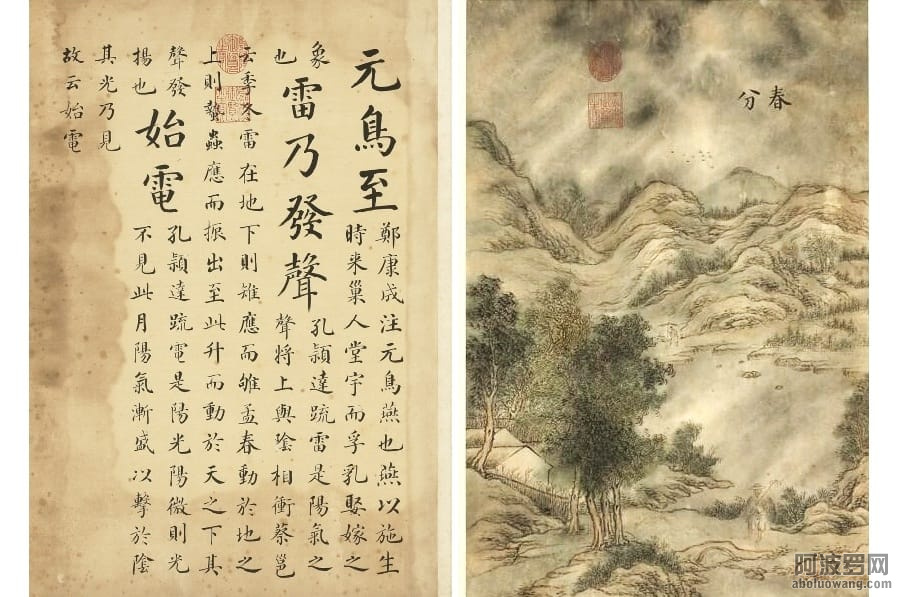 元鳥至
鄭康成注元鳥燕也燕以施生
時来巢人堂宇而孚乳娶嫁之
象
也
雷乃發聲
孔穎達疏雷是陽氣之
聲將上與陰相衝蔡邕
云季冬雷在地下則雉應而雊孟春動於地之
上則蟄蟲應而振出至此升而動於天之下其
聲發
揚也
始電
孔穎達疏電是陽光陽微則光
不見此月陽氣漸盛以擊於陰
其光乃見
故云始電
春分
阿波罗网
aboluowang.com